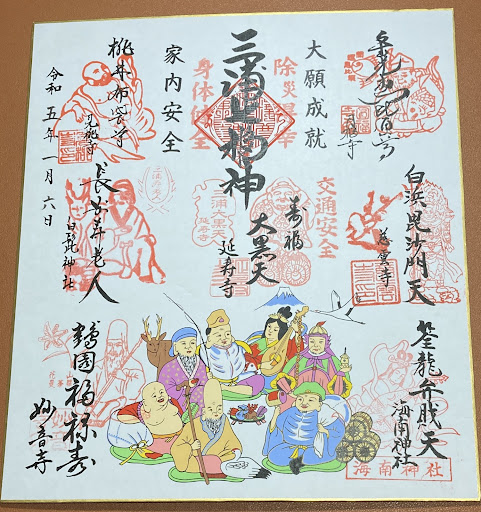 大願成就
除災招幸
三浦七福神
身体健全
家内安全
令和五年一月六日
白浜毘沙門天
慈雲寺
筌龍弁財天
海南神社
海南神社
交通安全
寿福
大黒天
延寿寺
桃林布袋尊
見桃寺
長安寿老人
白髭神社
鶴園福禄寿
妙音寺